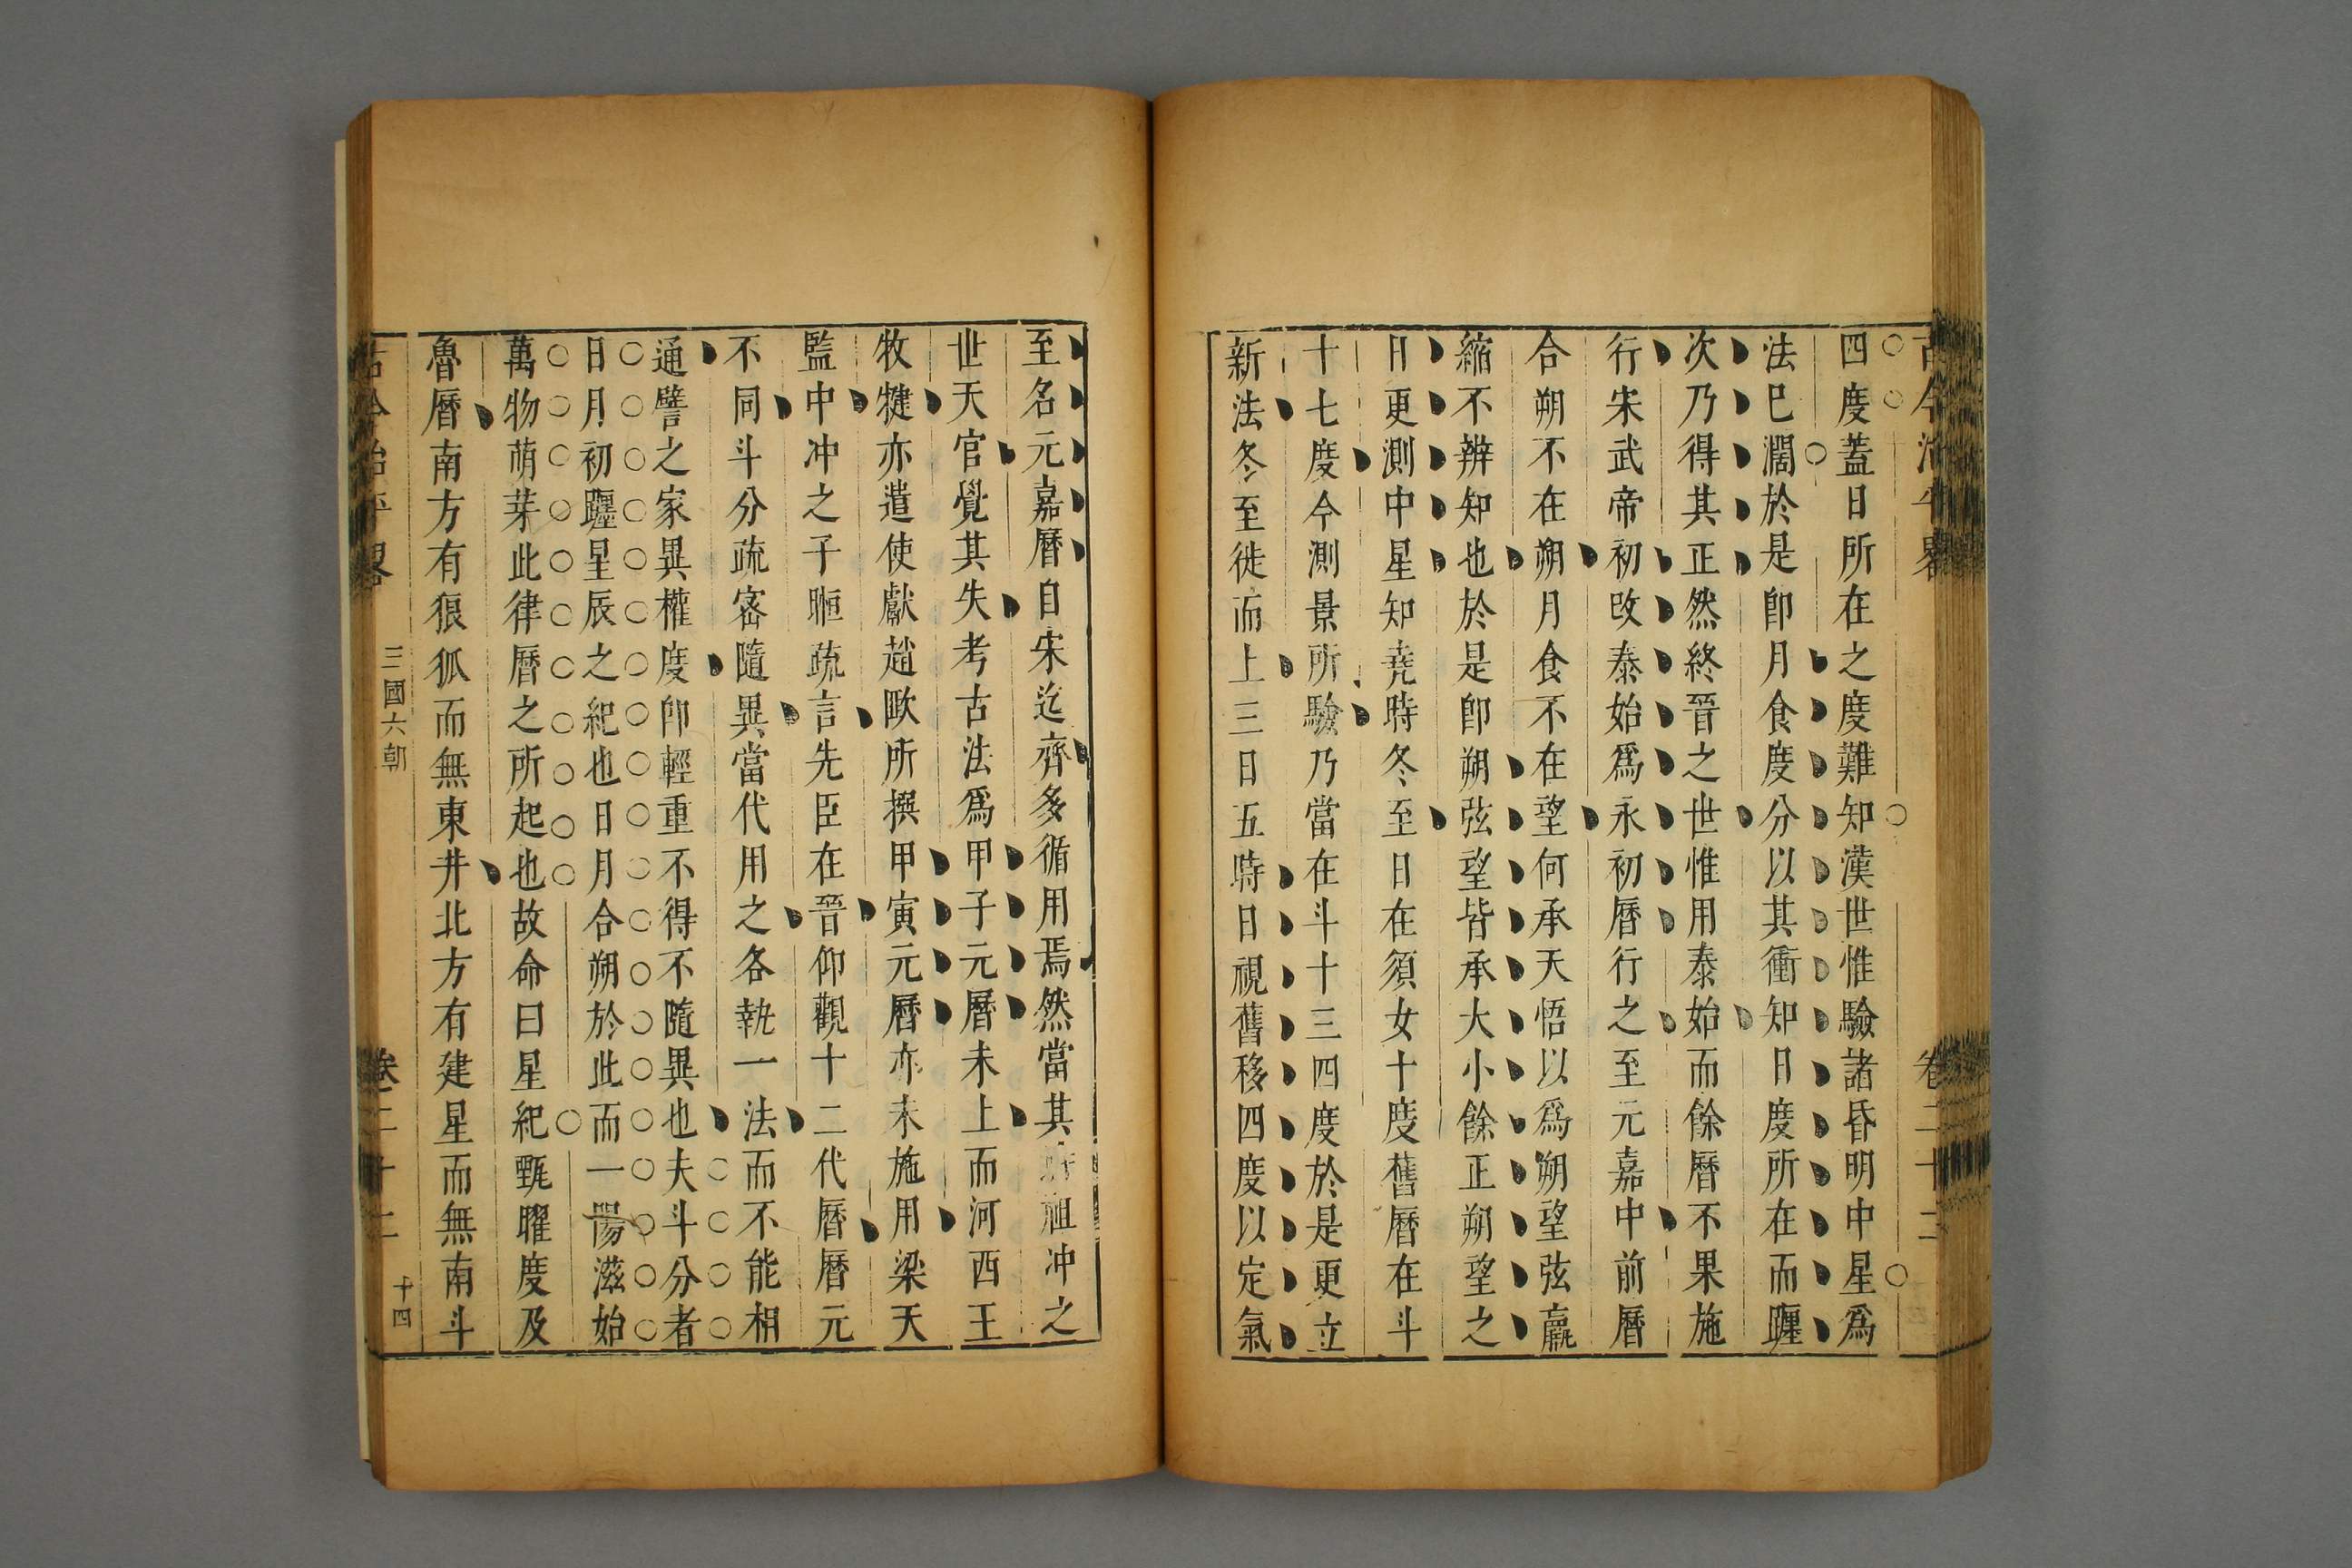 四度蓋日所在之度難知漢世惟驗諸昏明中星爲
法已濶於是卽月食度分以其衝知日度所在而躔
次乃得其正然終晉之世惟用泰始而餘曆不果施
行宋武帝初改泰始爲永初曆行之至元嘉中前曆
合朔不在朔月食不在望何承天悟以爲朔望弦羸
縮不辨知也於是卽朔弦望皆承大小餘正朔望之
日更測中星知堯時冬至日在須女十度舊曆在斗
十七度今測景所驗乃當在斗十三四度於是更立
新法冬至徙而上三日五時日視舊移四度以定氣
至名元嘉曆自宋迄齊多循用焉然當其時祖冲之
世天官覺其失考古法爲甲子元曆未上而河西王
牧犍亦遣使獻趙𢾺所撰甲寅元曆亦未施用梁天
監中冲之子暅疏言先臣在晉仰觀十二代曆曆元
不同斗分疏密隨異當代用之各執一法而不能相
通譬之家異權度卽輕重不得不隨異也夫斗分者
日月初躔星辰之紀也日月合朔於此而一陽滋始
萬物萌芽此律曆之所起也故命曰星紀甄曜度及
魯曆南方有狼狐而無東井北方有建星而無南斗
古今治平畧
三國六朝
卷二十二
十四